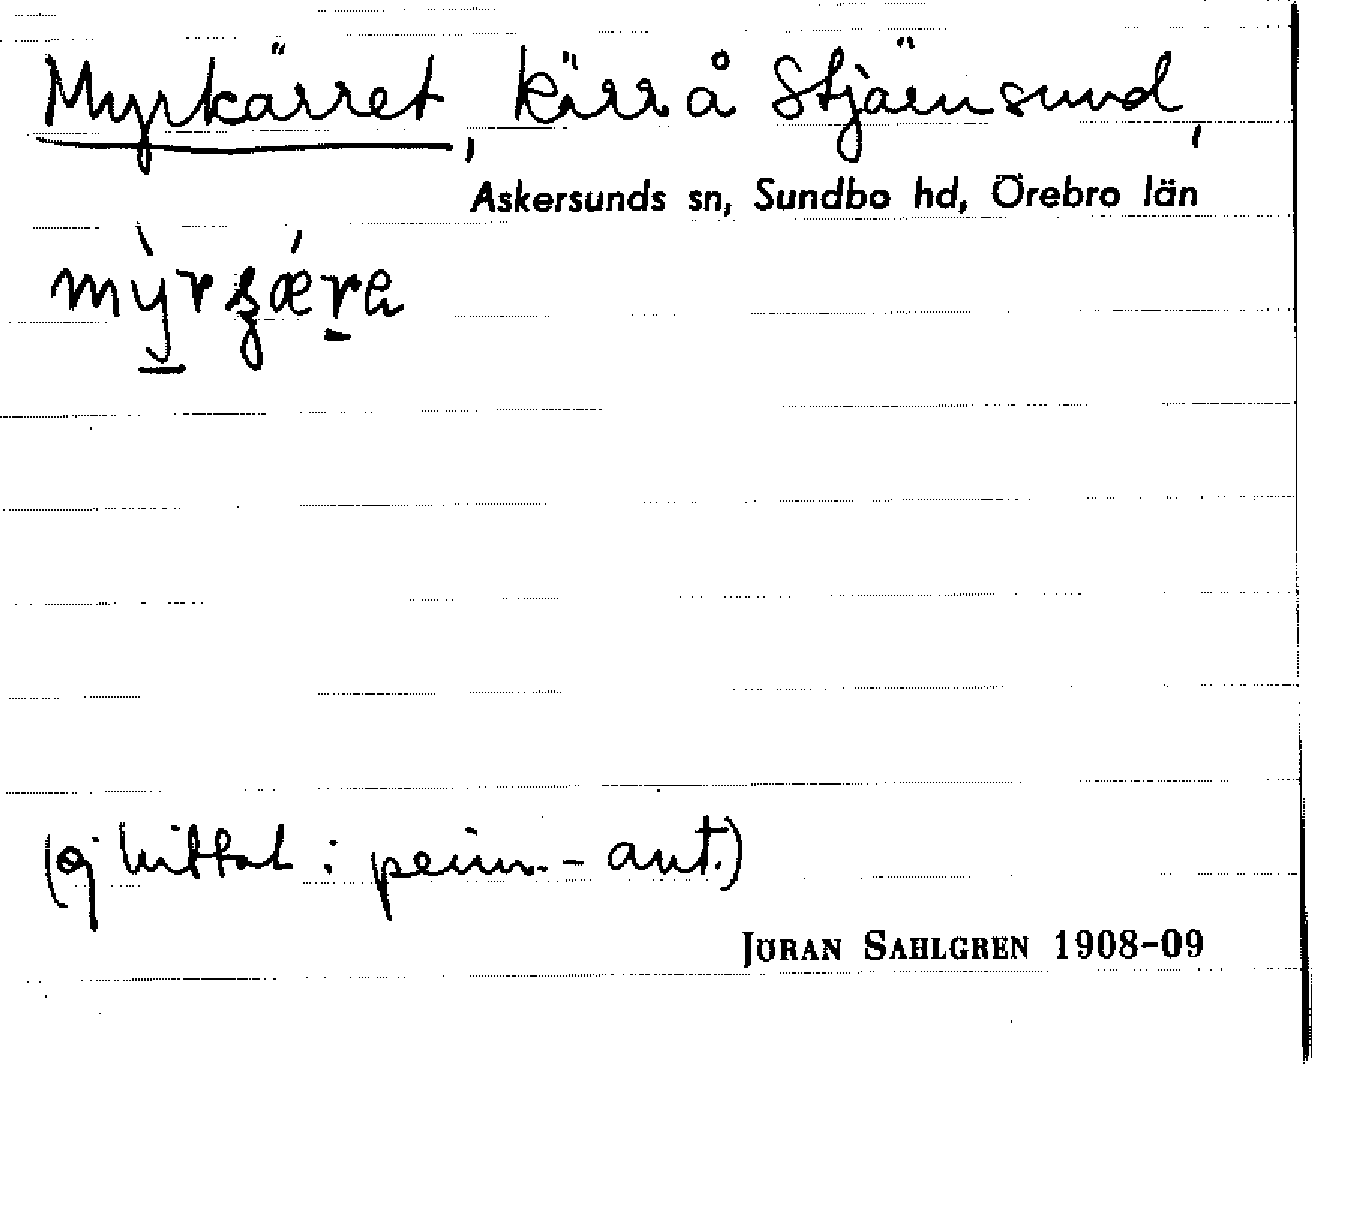 Myrkärret, kärr å Stjärnsund,
Askersunds sn, Sundbo hd, Örebro län
(ej hittat i prim.-ant.)
JÖRAN SAHLGREN 1908-09